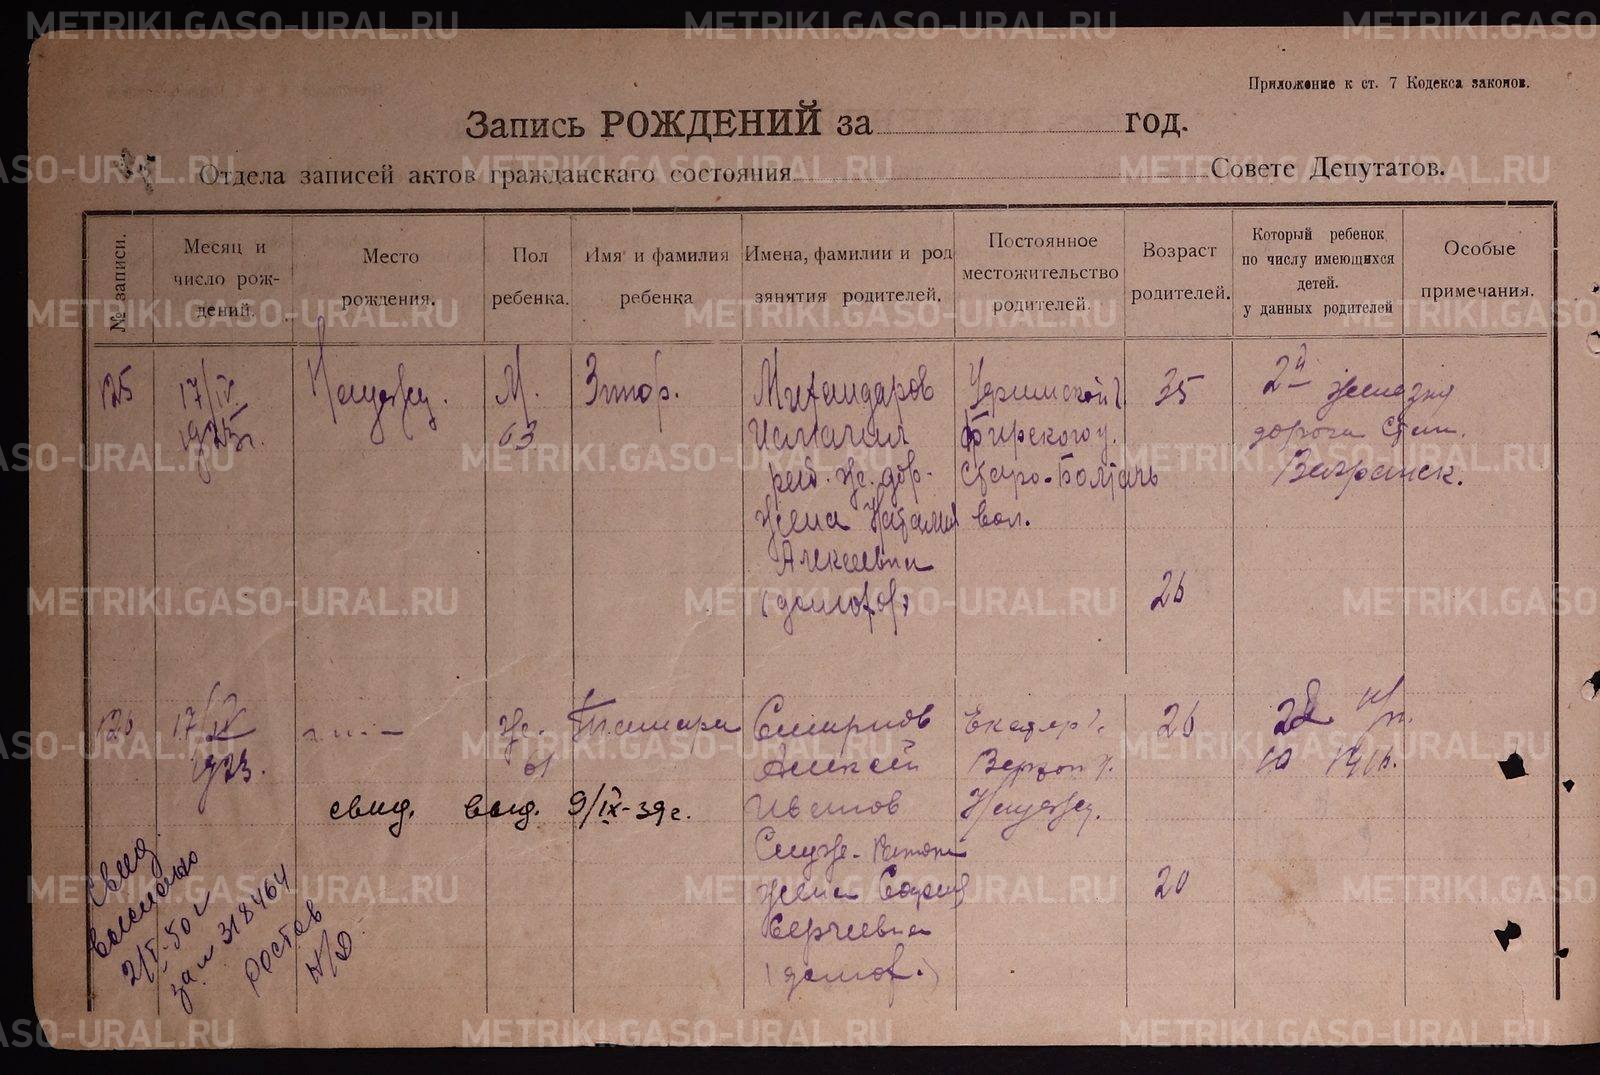 Приложение к ст. 7 Кодекса законов.
Запись РОЖДЕНИЙ за год.
Отдела записей актов гражданскаго состояния Совете Депутатов.
№ записи.
Месяц и
число рож-
дений.
Место
рождения.
Пол
ребенка.
Имя и фамилия
ребенка
Имена, фамилии и род
зянятия родителей.
Постоянное
местожительство
родителей.
Возраст
родителей.
Который ребенок
по числу имеющихся
детей.
у данных родителей
Особые
примечания.
125
17/IX
1923г.
М.
63
Исмагил
раб. же. дор.
Жена Наталия
Алексеевна
(домохоз)
Уфимской г.
Бирскогоу.
Старо-Балтачь
вол.
35
26
2й
дорога Стан.
126
17/IX
1923.
Же.
61
Тамара
Смирнов
Алексей
Иванов
Служ.
жена
Сергеевна
(домох.)
Екатер г.
Верхот у.
26
20
2й
свид. выд. 9/IX-39г.
Свид
2/V-50г
за № 318464
Ростов
Н/Д
METRIKI.GASO-URAL.RU